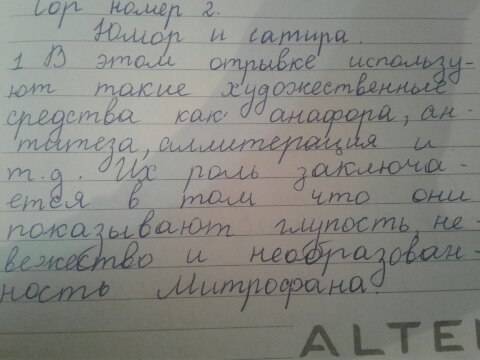 Сор номер 2.
Юмор и сатира.
1 В этом отрывке использу-
ют такие художественные
средства как анафора, ан-
титеза, аллитерация и
т.д. Их роль заключа-
ется в том что они
показывают глупость, не-
вежество и необразован-
ность Митрофана.
ALTE